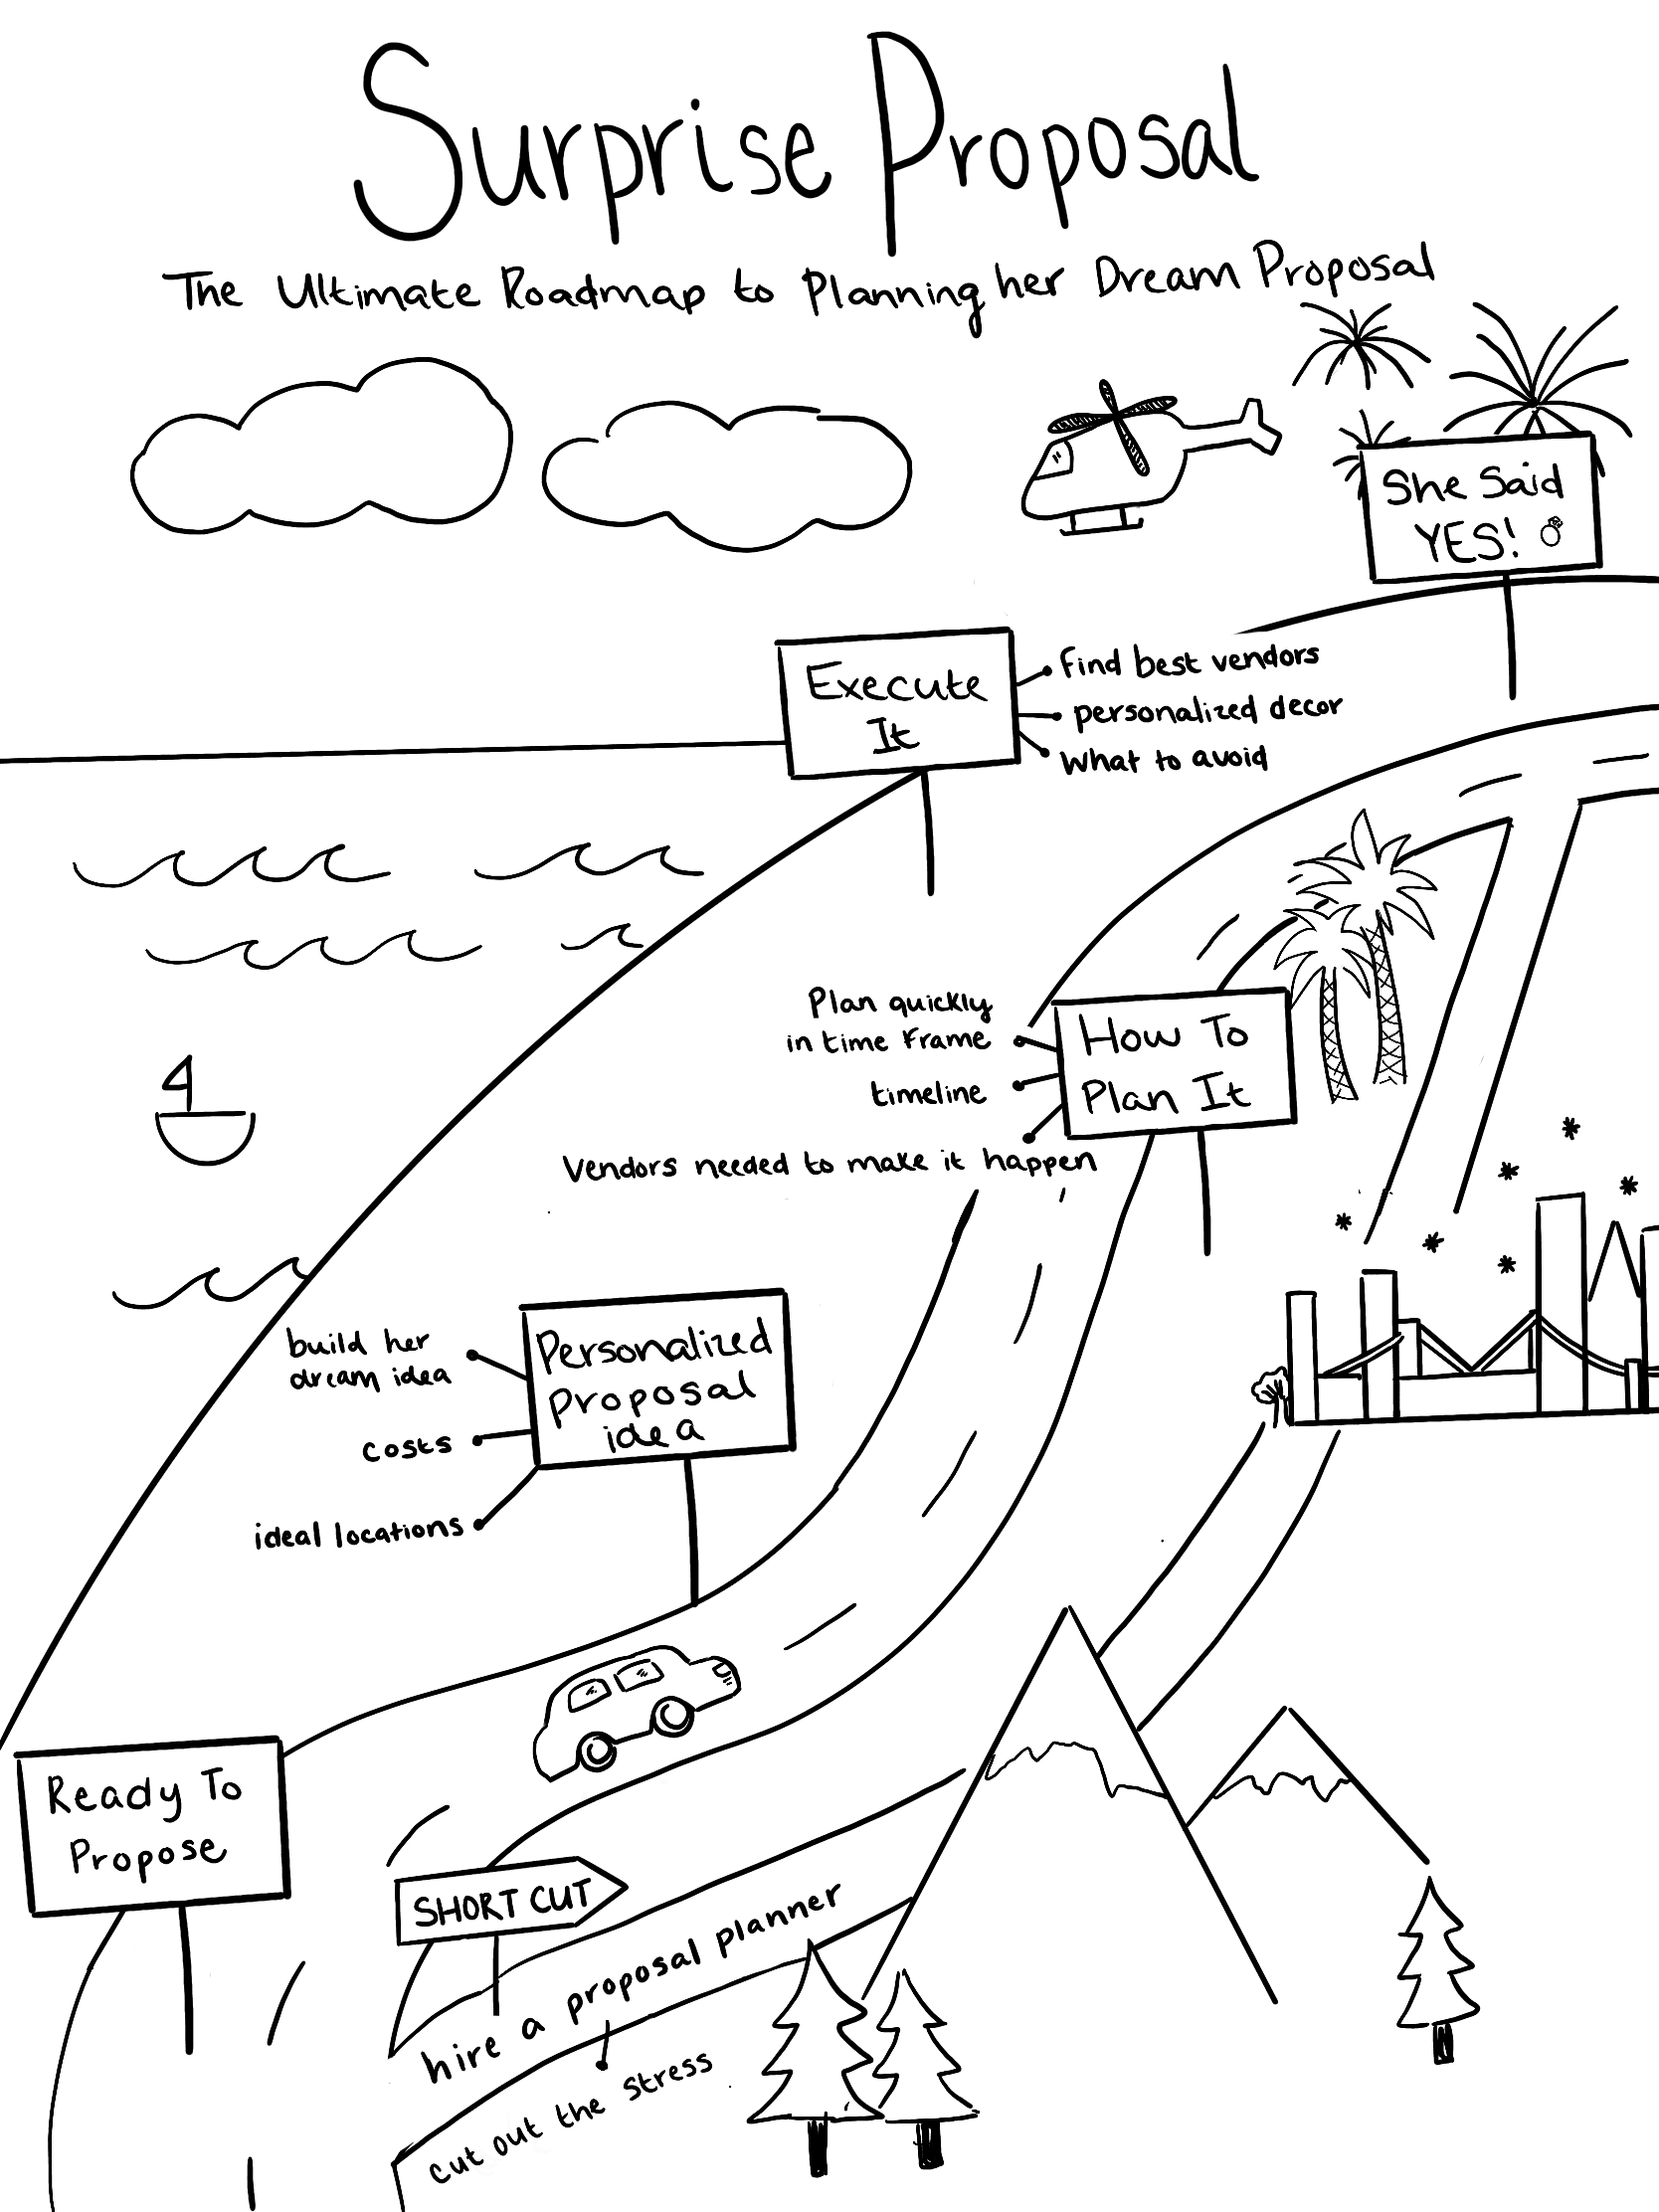 Surprise Proposal
The Ultimate Roadmap to Planning her Dream Proposal
She Said
YES!
Execute
It
Find best vendors
personalized decor
What to avoid
Plan quickly
in time Frame
timeline
Vendors needed to make it happen
How To
Plan It
build her
dream idea
costs
ideal locations
Personalized
Proposal
idea
Ready To
Propose
SHORT CUT
hire a proposal planner
cut out the stress